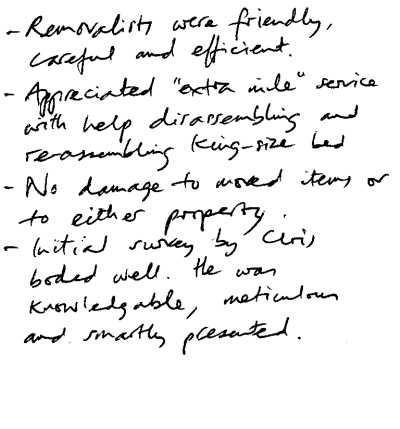 - Removalists were friendly,
careful and efficient.
- Appreciated "extra mile" service
with help disassembling and
re-assembling king-size bed
- No damage to moved items or
to either property.
- Initial survey by Chris
boded well. He was
knowledgable, meticulous
and smartly presented.